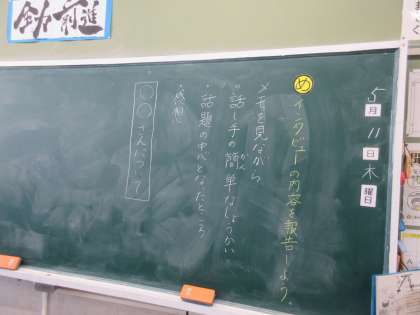 全力前進
5月11日木曜日
め インタビューの内容を報告しよう。
メモを見ながら
・話し手の簡単なしょうかい
かん
・話題の中心となったところ
・感想